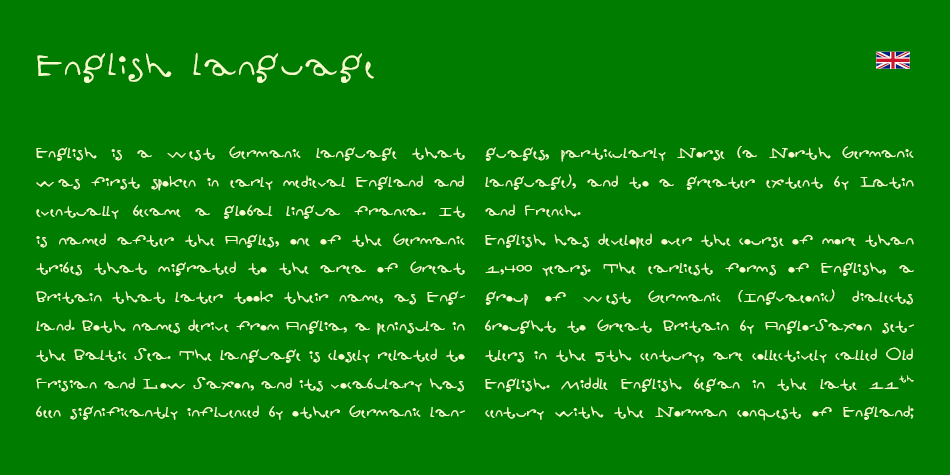 English language
English is a West Germanic language that
was first spoken in early medieval England and
eventually became a global lingua franca. It
is named after the Angles, one of the Germanic
tribes that migrated to the area of Great
Britain that later took their name, as Eng-
land. Both names derive from Anglia, a peninsula in
the Baltic Sea. The language is closely related to
Frisian and Low Saxon, and its vocabulary has
been significantly influenced by other Germanic lan-
guages, particularly Norse (a North Germanic
language), and to a greater extent by Latin
and French.
English has developed over the course of more than
1,400 years. The earliest forms of English, a
group of West Germanic (Ingvaeonic) dialects
brought to Great Britain by Anglo-Saxon set-
tlers in the 5th century, are collectively called Old
English. Middle English began in the late 11th
century with the Norman conquest of England;